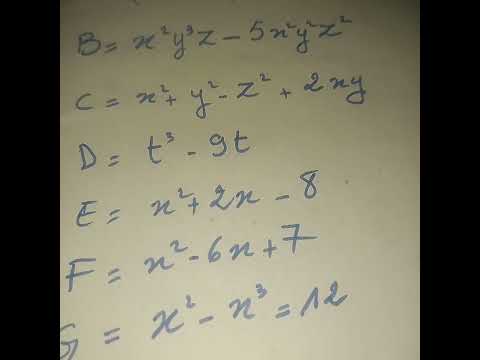 B = x²y³z - 5x²y²z²
C = x² + y² - z² + 2xy
D = t³ - 9t
E = x² + 2x - 8
F = x² - 6x + 7
G = x² - x³ = 12